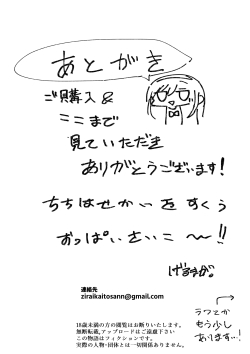 あとがき
ご購入&
ここまで
見ていただき
ありがとうございます!
ちちはせかいをすくう
おっぱいさいこ〜〜!!
げすが。
連絡先
ziraikaitosann@gmail.com
18歳未満の方の閲覧はお断りいたします。
無断転載,アップロードはご遠慮下さい
この物語はフィクションです。
実際の人物・団体とは一切関係ありません。
ラフとか
もう少し
あります…!